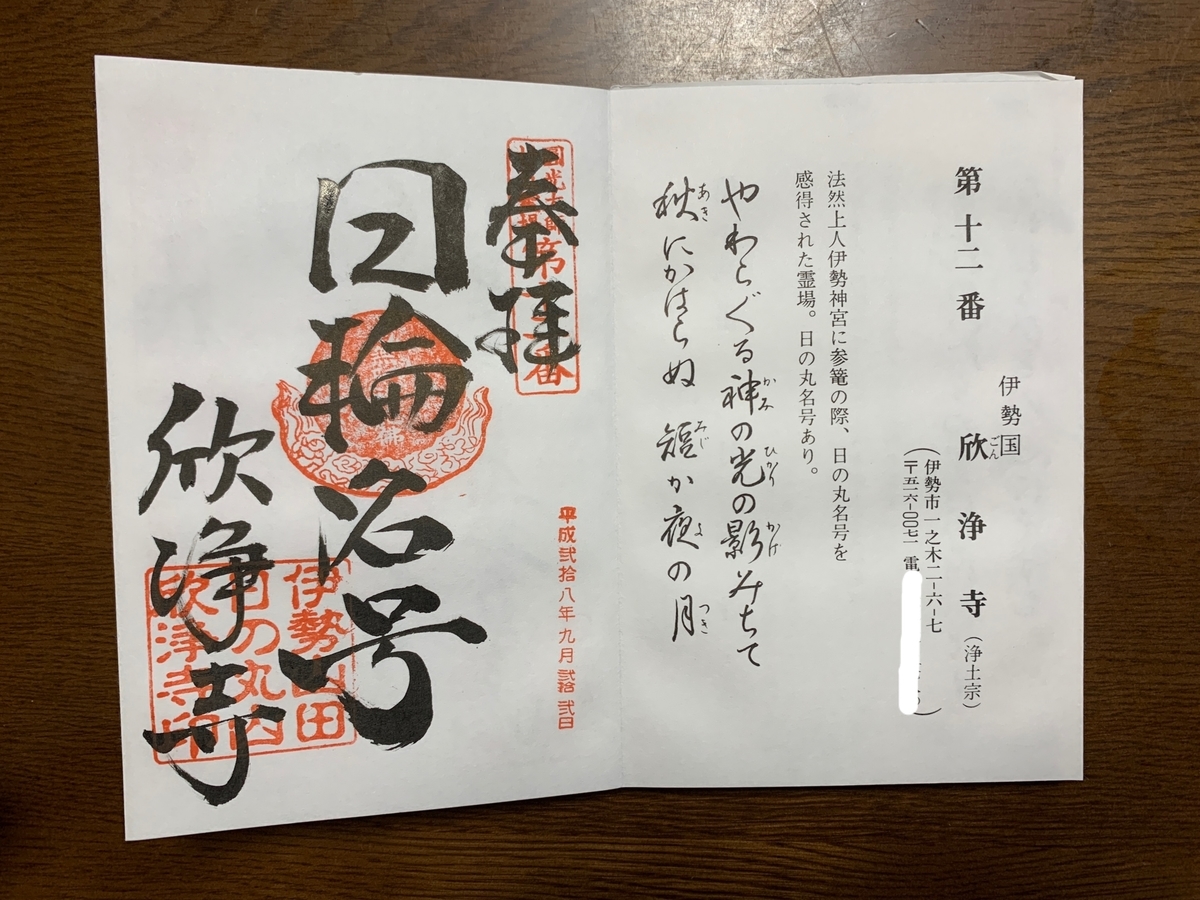 第十二番
伊勢国
欣浄寺（浄土宗）
ごん
（伊勢市一之木二-六-七
〒五一六-〇〇七一 電
法然上人伊勢神宮に参篭の際、日の丸名号を
感得された霊場。日の丸名号あり。
やわらぐる神の光の影みちて
かみ ひかり かげ
秋にかはらぬ 短か夜の月
あき みじ よ つき
奉拝
平成弐拾八年九月弐拾弐日
日輪名号
佛
伊勢山田
日の丸
欣浄寺印
欣浄寺